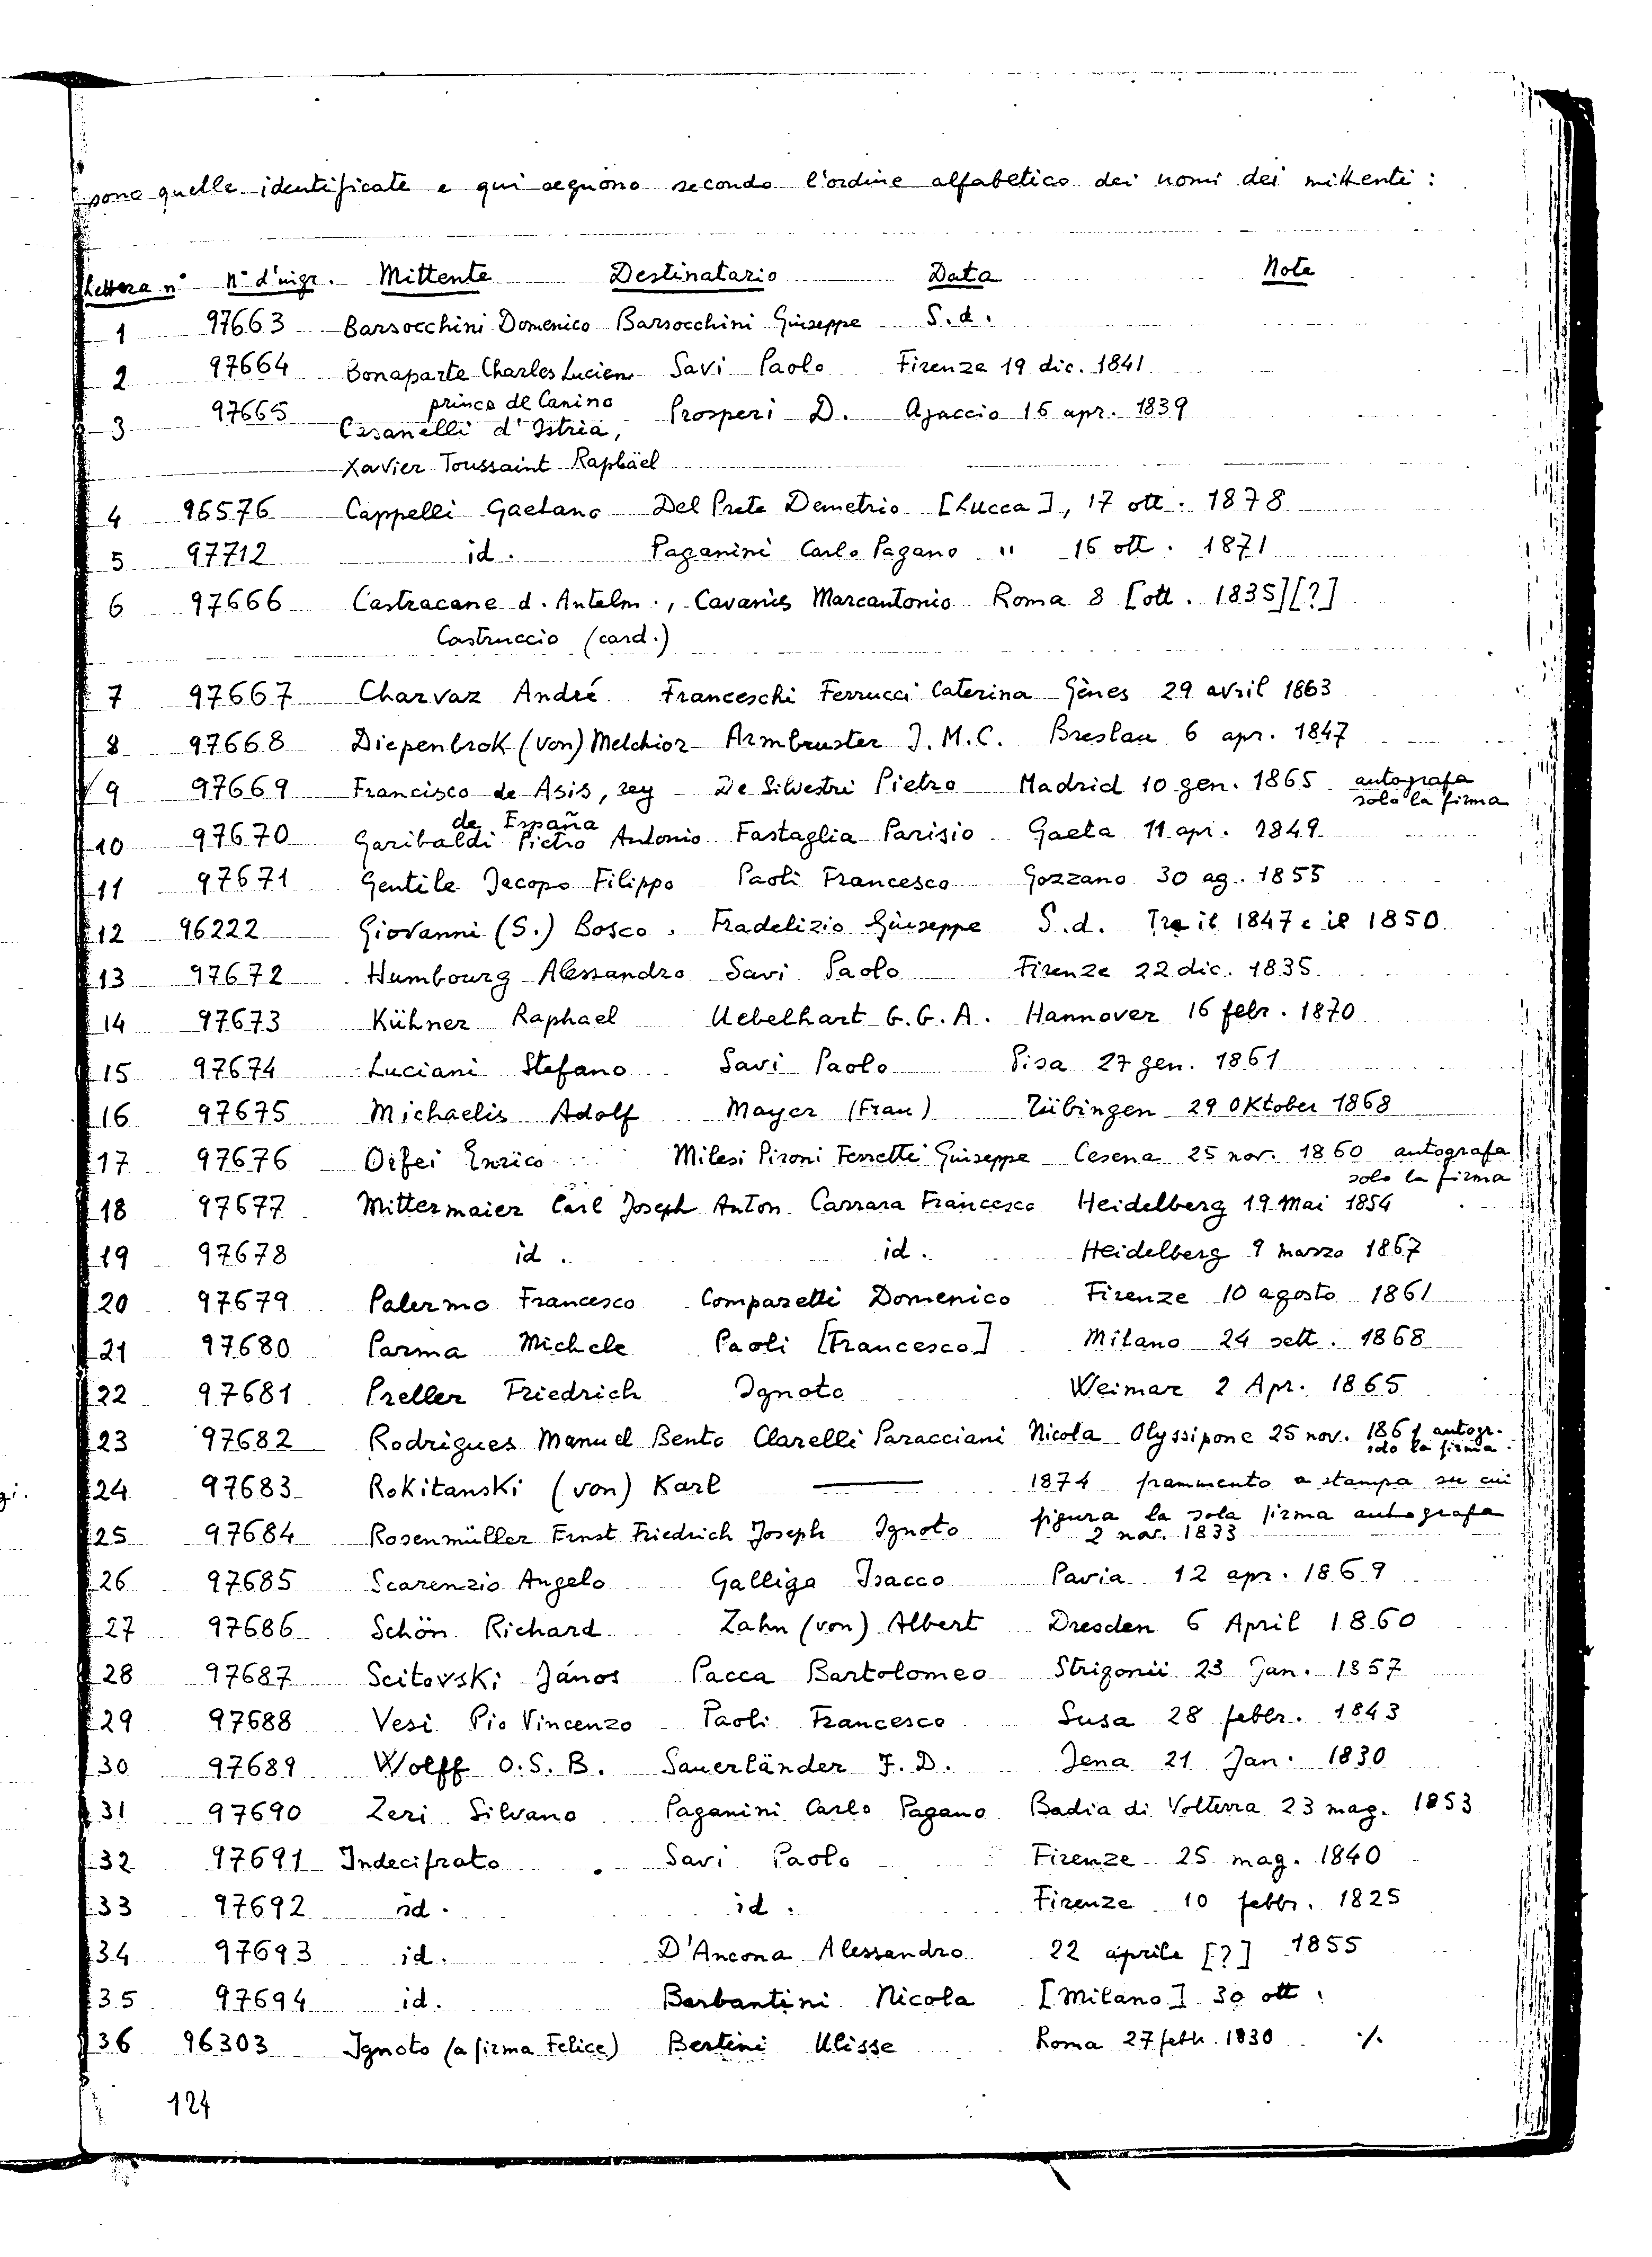 sono quelle identificate e qui seguono secondo l'ordine alfabetico dei nomi dei mittenti:
Lettera n° N° d'ingr. Mittente Destinatario Data Note
1 97663 Barsocchini Domenico Barsocchini Giuseppe S.d.
2 97664 Bonaparte Charles Lucien Savi Paolo Firenze 19 dic. 1841
prince de Canino
3 97665 Casanelli d'Istria, Prosperi D. Ajaccio 16 apr. 1839
Xavier Toussaint Raphäel
4 96576 Cappelli Gaetano Del Prete Demetrio [Lucca], 17 ott. 1878
5 97712 id. Paganini Carlo Pagano " 16 ott. 1871
6 97666 Castracane d. Antelm., Cavanis Marcantonio Roma 8 [ott. 1835][?]
Castruccio (card.)
7 97667 Charvaz André Franceschi Ferrucci Caterina Gènes 29 avril 1863
8 97668 Diepenbrok (von) Melchior Armbruster J.M.C. Breslau 6 apr. 1847
9 97669 Francisco de Asis, rey De Silvestri Pietro Madrid 10 gen. 1865 autografa
solo la firma
de España
10 97670 Garibaldi Pietro Antonio Fastaglia Parisio Gaeta 11 apr. 1849
11 97671 Gentile Jacopo Filippo Paoli Francesco Gozzano 30 ag. 1855
12 96222 Giovanni (S.) Bosco. Fradelizio Giuseppe S.d. Tra il 1847 e il 1850
13 97672 Humbourg Alessandro Savi Paolo Firenze 22 dic. 1835
14 97673 Kühner Raphael Uebelhart G.G.A. Hannover 16 febr. 1870
15 97674 Luciani Stefano Savi Paolo Pisa 27 gen. 1861
16 97675 Michaelis Adolf Mayer (Frau) Tübingen 29 Oktober 1868
17 97676 Oifei Enrico Milesi Pironi Ferretti Giuseppe Cesena 25 nov. 1860 autografa
solo la firma
18 97677 Mittermaier Carl Joseph Anton Carrara Francesco Heidelberg 19 Mai 1854
19 97678 id. id. Heidelberg 9 marzo 1867
20 97679 Palermo Francesco Comparetti Domenico Firenze 10 agosto 1861
21 97680 Parma Michele Paoli [Francesco] Milano 24 sett. 1868
22 97681 Preller Friedrich Ignoto Weimar 2 Apr. 1865
23 97682 Rodrigues Manuel Bento Clarelli Paracciani Nicola Olyssipone 25 nov. 1861 autogr.
solo la firma
24 97683 Rokitanski (von) Karl — 1874 frammento a stampa su cui
figura la sola firma autografa
25 97684 Rosenmüller Ernst Friedrich Joseph Ignoto 2 nov. 1833
26 97685 Scarenzio Angelo Galligo Isacco Pavia 12 apr. 1869
27 97686 Schön Richard Zahn (von) Albert Dresden 6 April 1860
28 97687 Scitovski János Pacca Bartolomeo Strigonii 23 Jan. 1857
29 97688 Vesi Pio Vincenzo Paoli Francesco Susa 28 febbr. 1843
30 97689 Wolff O.S.B. Sauerländer J.D. Jena 21 Jan. 1830
31 97690 Zeri Silvano Paganini Carlo Pagano Badia di Volterra 23 mag. 1853
32 97691 Indecifrato Savi Paolo Firenze 25 mag. 1840
33 97692 id. id. Firenze 10 febbr. 1825
34 97693 id. D'Ancona Alessandro 22 aprile [?] 1855
35 97694 id. Barbantini Nicola [Milano] 30 ott.
36 96303 Ignoto (a firma Felice) Bertini Ulisse Roma 27 febb. 1830 ./.
124